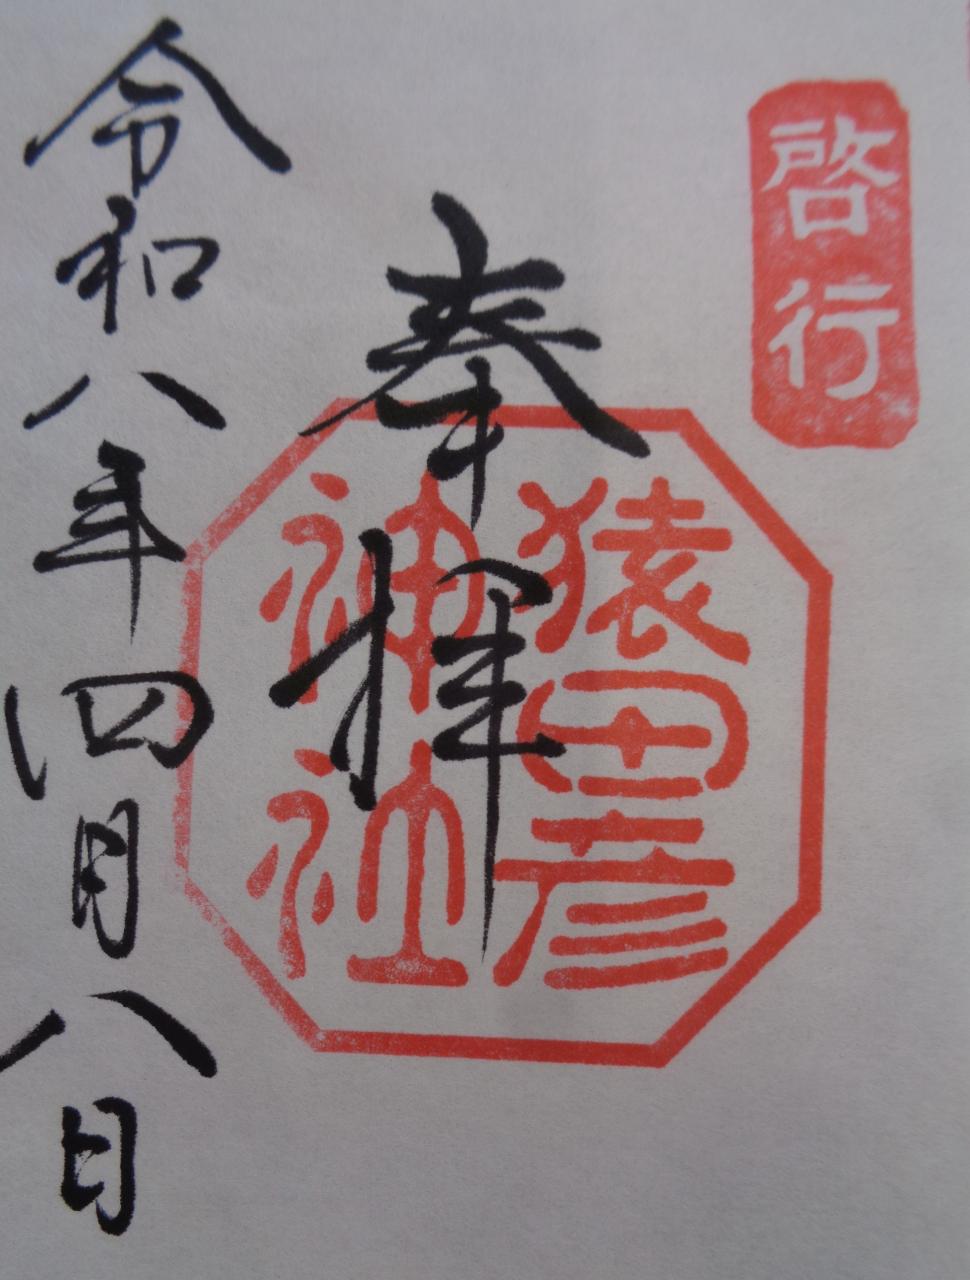 啓行
奉拝
猿田彦
神社
令和八年四月八日